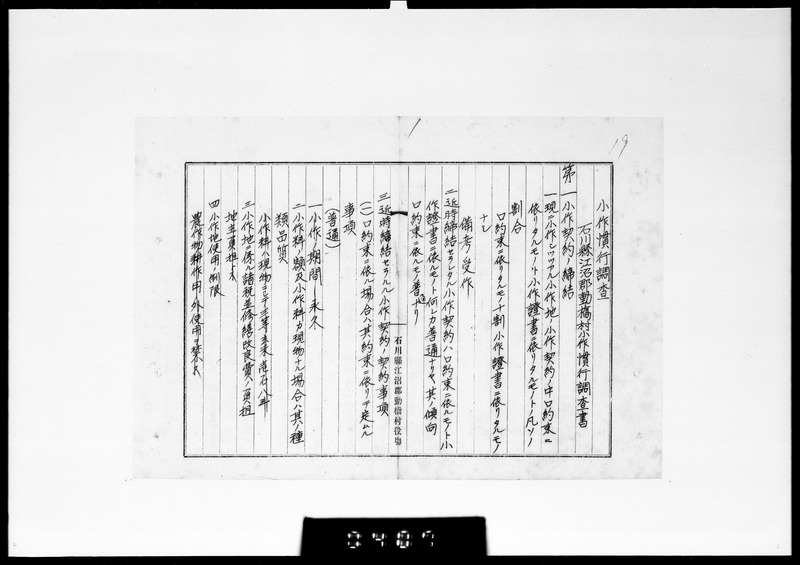 19
小作慣行調査
石川縣江沼郡動橋村小作慣行調査書
第一 小作契約ノ締結
一 現ニ小作シツツアル小作地ノ小作契約ノ中口約束ニ
依リタルモノト小作證書ニ依リタルモノトノ凡ソノ
割合
口約束ニ依リタルモノ十割 小作證書ニ依リタルモノ
ナシ
備考 受作
二 近時締結セラレタル小作契約ハ口約束ニ依ルモノト小
作證書ニ依ルモノト何レカ普通ナリヤ、其ノ傾向
口約束ニ依ルモノ普通ナリ
石川縣江沼郡動橋村役場
三 近時締結セラルル小作契約ノ契約事項
(一) 口約束ニ依ル場合ハ其ノ約束ニ依リテ定ムル
事項
(普通)
一 小作ノ期間 永久
二 小作料ノ額及小作料カ現物ナル場合ハ其ノ種
類品質
小作料ハ現物ニシテ三等玄米
三 小作地ニ係ル諸税並修繕改良費ノ負担
地主負担トス
四 小作地使用ノ制限
農作物耕作用ノ外使用ヲ禁ス
0487